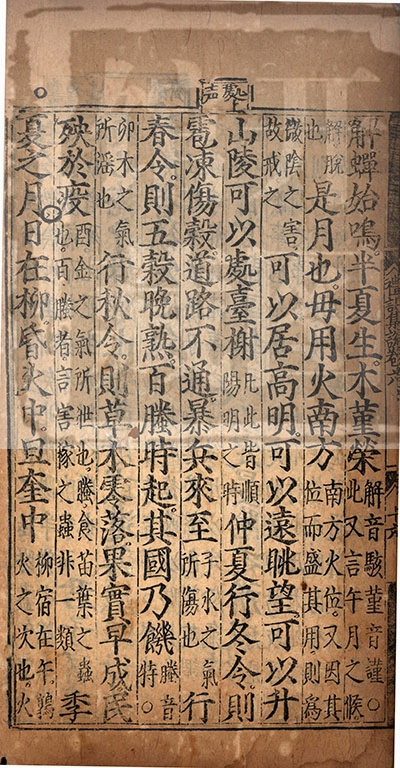 處上聲
解蟬始鳴半夏生木堇榮解音駭堇音謹○此又言午月之候
解脫也是月也毋用火南方南方火位又因其位而盛其用則為
微陰之害故戒之可以居高明可以遠眺望可以升
山陵可以處臺榭凡此皆順陽明之時仲夏行冬令則
雹凍傷穀道路不通暴兵來至子水之氣所傷也行
春令則五穀晚熟百螣時起其國乃饑螣音特○
卯木之氣所淫也行秋令則草木零落果實早成民
殃於疫酉金之氣所泄也螣食苗葉之蟲也百螣者言害稼之蟲非一類季
夏之月日在柳昏火中旦奎中柳宿在午鶉火之次也火